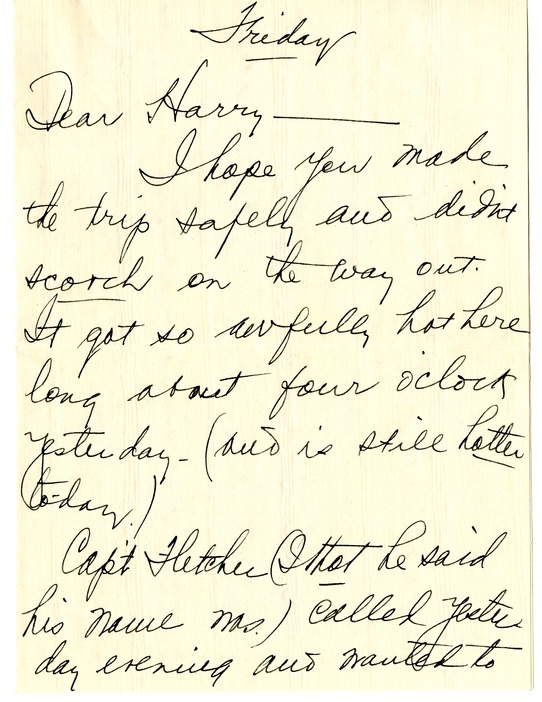 Friday
Dear Harry —
I hope you made
the trip safely and didn't
scorch on the way out.
It got so awfully hot here
long about four o'clock
yesterday - (and is still hotter
to-day.)
Capt Fletcher (I that he said
his name was.) called yester-
day evening and wanted to